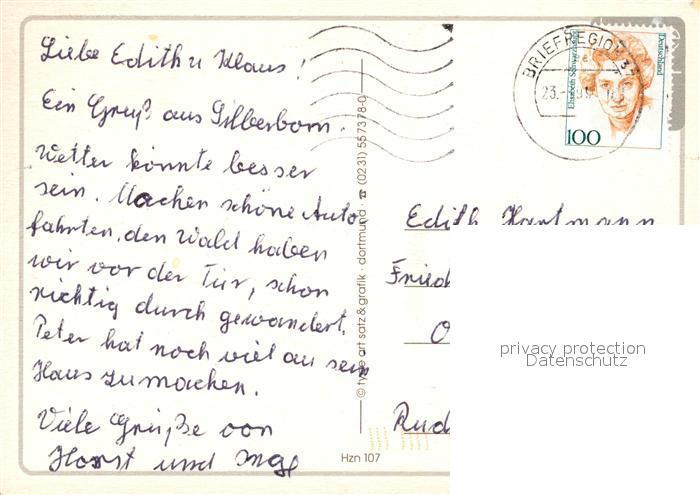 Liebe Edith u Klaus!
Ein Gruß aus Silberborn.
Wetter könnte besser
sein. Machen schöne Auto
fahrten, den Wald haben
wir vor der Tür, schon
richtig durch gewandert.
Peter hat noch viel an sein
Haus zumachen.
Viele Grüße von
Horst und Inge
© type art satz & grafik · dortmund ☎ (0231) 557378-0
Hzn 107
BRIEFREGION 37
23.
Elisabeth Schwarzhaupt
Deutschland
100
Edith Hartmann
Fried
O
Rud
privacy protection
Datenschutz